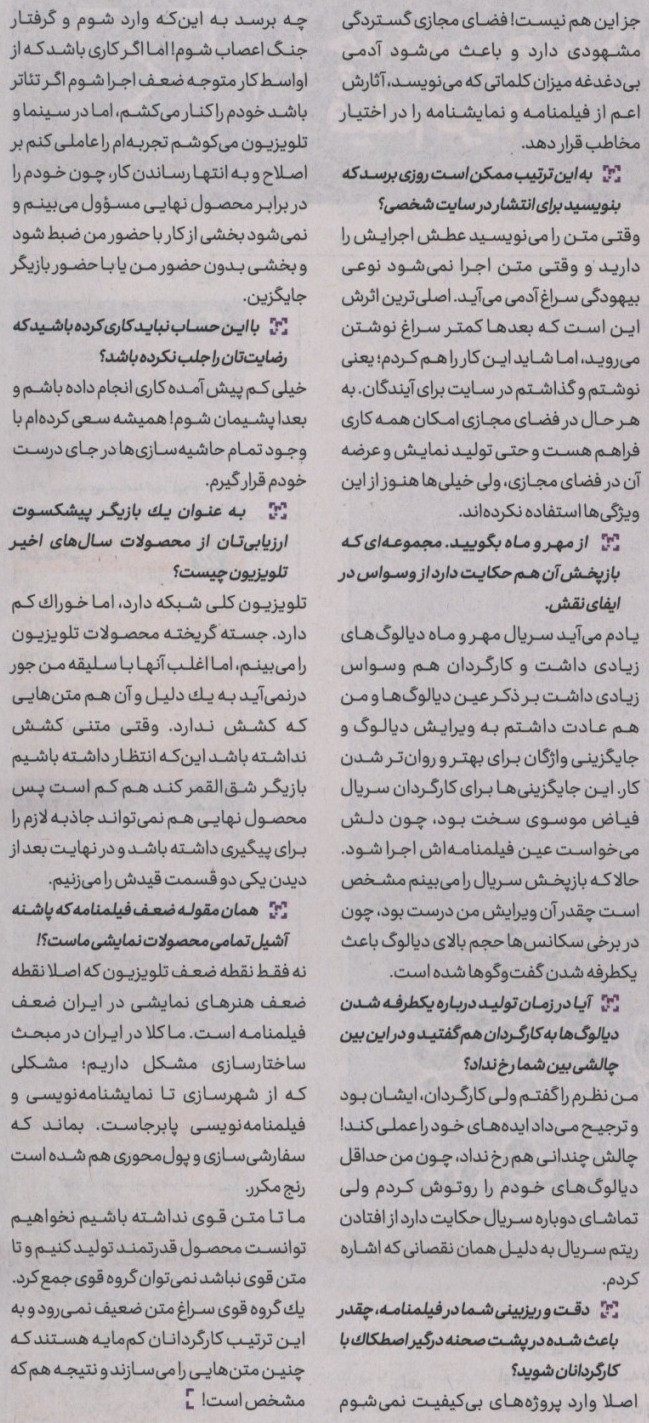 جز این هم نیست! فضای مجازی گستردگی
مشهودی دارد و باعث می‌شود آدمی
بی‌دغدغه میزان کلماتی که می‌نویسد، آثارش
اعم از فیلمنامه و نمایشنامه را در اختیار
مخاطب قرار دهد.
به این ترتیب ممکن است روزی برسد که
بنویسید برای انتشار در سایت شخصی؟
وقتی متن را می‌نویسید عطش اجرایش را
دارید و وقتی متن اجرا نمی‌شود نوعی
بیهودگی سراغ آدمی می‌آید. اصلی‌ترین اثرش
این است که بعدها کمتر سراغ نوشتن
می‌روید، اما شاید این کار را هم کردم؛ یعنی
نوشتم و گذاشتم در سایت برای آیندگان. به
هر حال در فضای مجازی امکان همه کاری
فراهم هست و حتی تولید نمایش و عرضه
آن در فضای مجازی، ولی خیلی‌ها هنوز از این
ویژگی‌ها استفاده نکرده‌اند.
از مهر و ماه بگویید. مجموعه‌ای که
بازپخش آن هم حکایت دارد از وسواس در
ایفای نقش.
یادم می‌آید سریال مهر و ماه دیالوگ‌های
زیادی داشت و کارگردان هم وسواس
زیادی داشت بر ذکر عین دیالوگ‌ها و من
هم عادت داشتم به ویرایش دیالوگ و
جایگزینی واژگان برای بهتر و روان‌تر شدن
کار. این جایگزینی‌ها برای کارگردان سریال
فیاض موسوی سخت بود، چون دلش
می‌خواست عین فیلمنامه‌اش اجرا شود.
حالا که بازپخش سریال را می‌بینم مشخص
است چقدر آن ویرایش من درست بود، چون
در برخی سکانس‌ها حجم بالای دیالوگ باعث
یکطرفه شدن گفت‌وگوها شده است.
آیا در زمان تولید درباره یکطرفه شدن
دیالوگ‌ها به کارگردان هم گفتید و در این بین
چالشی بین شما رخ نداد؟
من نظرم را گفتم ولی کارگردان، ایشان بود
و ترجیح می‌داد ایده‌های خود را عملی کند!
چالش چندانی هم رخ نداد، چون من حداقل
دیالوگ‌های خودم را روتوش کردم ولی
تماشای دوباره سریال حکایت دارد از افتادن
ریتم سریال به دلیل همان نقصانی که اشاره
کردم.
دقت و ریزبینی شما در فیلمنامه، چقدر
باعث شده در پشت صحنه درگیر اصطکاك با
کارگردانان شوید؟
اصلا وارد پروژه‌های بی‌کیفیت نمی‌شوم
چه برسد به این‌که وارد شوم و گرفتار
جنگ اعصاب شوم! اما اگر کاری باشد که از
اواسط کار متوجه ضعف اجرا شوم اگر تئاتر
باشد خودم را کنار می‌کشم، اما در سینما و
تلویزیون می‌کوشم تجربه‌ام را عاملی کنم بر
اصلاح و به انتها رساندن کار، چون خودم را
در برابر محصول نهایی مسؤول می‌بینم و
نمی‌شود بخشی از کار با حضور من ضبط شود
و بخشی بدون حضور من یا با حضور بازیگر
جایگزین.
با این حساب نباید کاری کرده باشید که
رضایت‌تان را جلب نکرده باشد؟
خیلی کم پیش آمده کاری انجام داده باشم و
بعدا پشیمان شوم! همیشه سعی کرده‌ام با
وجود تمام حاشیه‌سازی‌ها در جای درست
خودم قرار گیرم.
به عنوان یك بازیگر پیشکسوت
ارزیابی‌تان از محصولات سال‌های اخیر
تلویزیون چیست؟
تلویزیون کلی شبکه دارد، اما خوراك کم
دارد. جسته گریخته محصولات تلویزیون
را می‌بینم، اما اغلب آنها با سلیقه من جور
درنمی‌آید به یك دلیل و آن هم متن‌هایی
که کشش ندارد. وقتی متنی کشش
نداشته باشد این‌که انتظار داشته باشیم
بازیگر شق‌القمر کند هم کم است پس
محصول نهایی هم نمی‌تواند جاذبه لازم را
برای پیگیری داشته باشد و در نهایت بعد از
دیدن یکی دو قسمت قیدش را می‌زنیم.
همان مقوله ضعف فیلمنامه که پاشنه
آشیل تمامی محصولات نمایشی ماست؟!
نه فقط نقطه ضعف تلویزیون که اصلا نقطه
ضعف هنرهای نمایشی در ایران ضعف
فیلمنامه است. ما کلا در ایران در مبحث
ساختارسازی مشکل داریم؛ مشکلی
که از شهرسازی تا نمایشنامه‌نویسی و
فیلمنامه‌نویسی پابرجاست. بماند که
سفارشی‌سازی و پول‌محوری هم شده است
رنج مکرر.
ما تا متن قوی نداشته باشیم نخواهیم
توانست محصول قدرتمند تولید کنیم و تا
متن قوی نباشد نمی‌توان گروه قوی جمع کرد.
یك گروه قوی سراغ متن ضعیف نمی‌رود و به
این ترتیب کارگردانان کم‌مایه هستند که
چنین متن‌هایی را می‌سازند و نتیجه هم که
مشخص است!